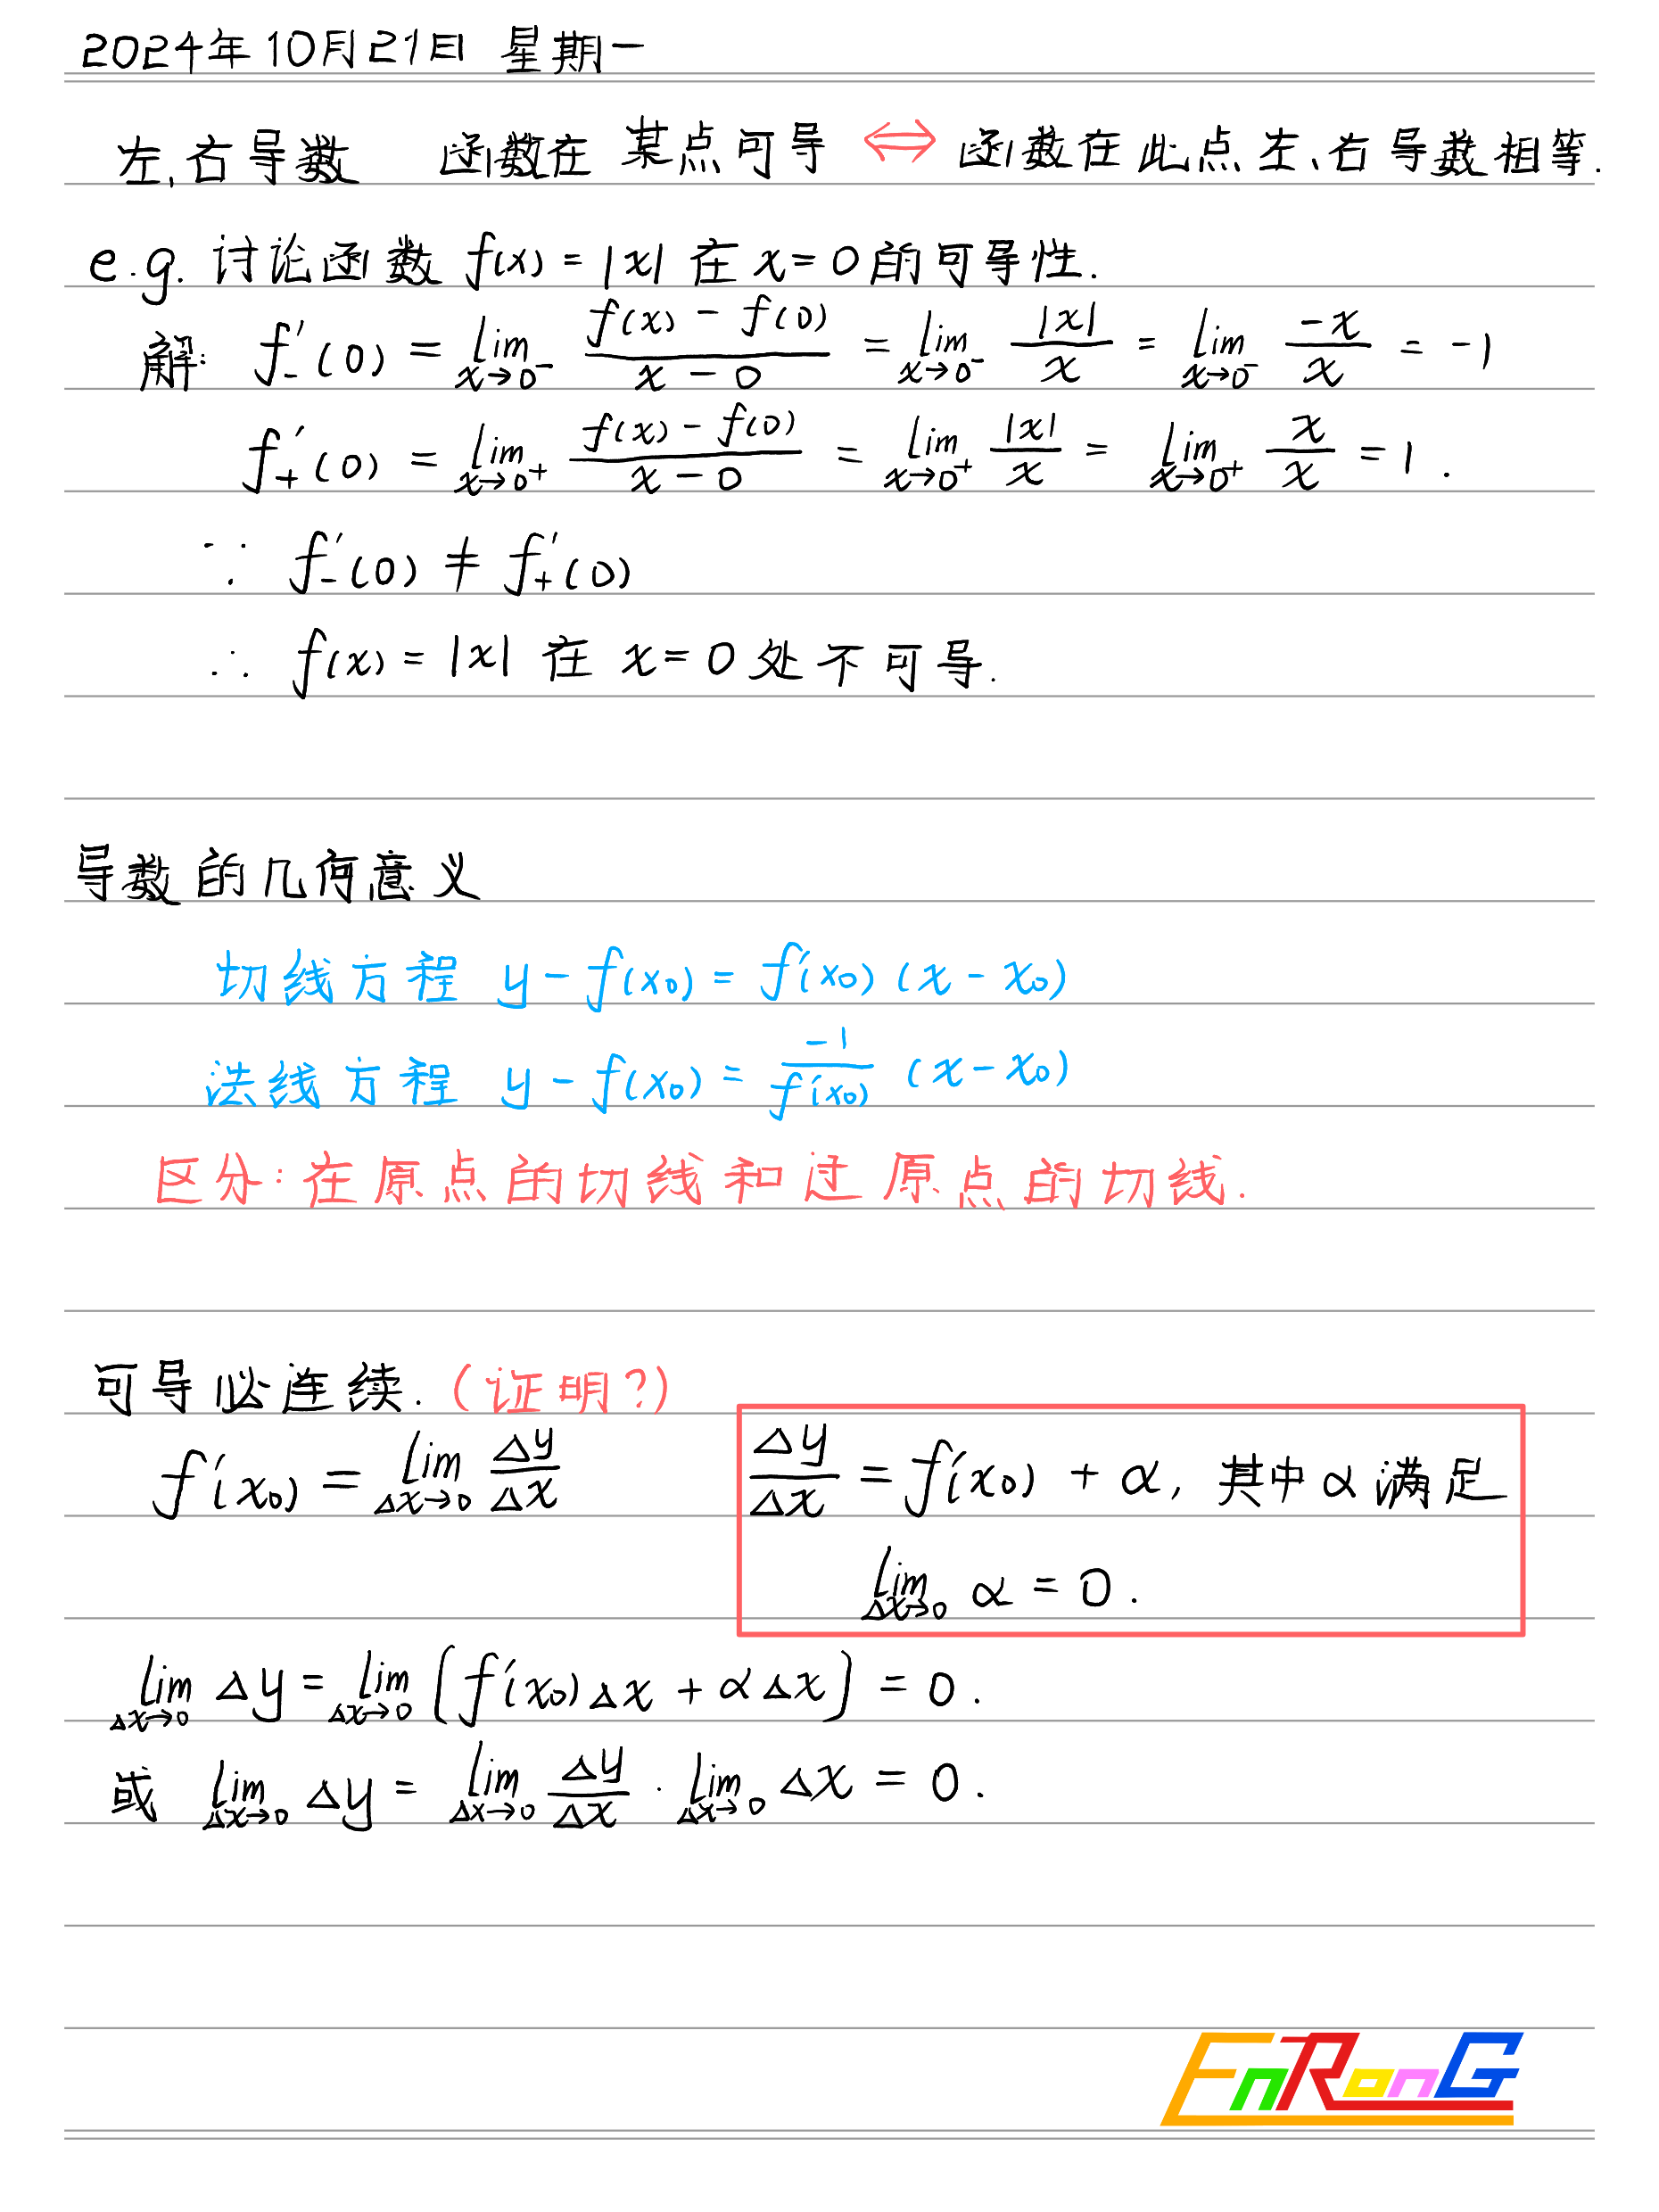 2024年10月21日 星期一
左、右导数 函数在某点可导 ⇔ 函数在此点左、右导数相等.
e.g. 讨论函数 f(x) = |x| 在 x = 0 的可导性.
解: f₋′(0) = lim_{x→0⁻} (f(x) − f(0))/(x − 0) = lim_{x→0⁻} |x|/x = lim_{x→0⁻} −x/x = −1
f₊′(0) = lim_{x→0⁺} (f(x) − f(0))/(x − 0) = lim_{x→0⁺} |x|/x = lim_{x→0⁺} x/x = 1.
∵ f₋′(0) ≠ f₊′(0)
∴ f(x) = |x| 在 x = 0 处不可导.
导数的几何意义
切线方程 y − f(x₀) = f′(x₀)(x − x₀)
法线方程 y − f(x₀) = −1/f′(x₀) (x − x₀)
区分: 在原点的切线和过原点的切线.
可导必连续. (证明?)
f′(x₀) = lim_{Δx→0} Δy/Δx
Δy/Δx = f′(x₀) + α, 其中α满足
lim_{Δx→0} α = 0.
lim_{Δx→0} Δy = lim_{Δx→0} [f′(x₀)Δx + αΔx] = 0.
或 lim_{Δx→0} Δy = lim_{Δx→0} Δy/Δx · lim_{Δx→0} Δx = 0.
EnRonG